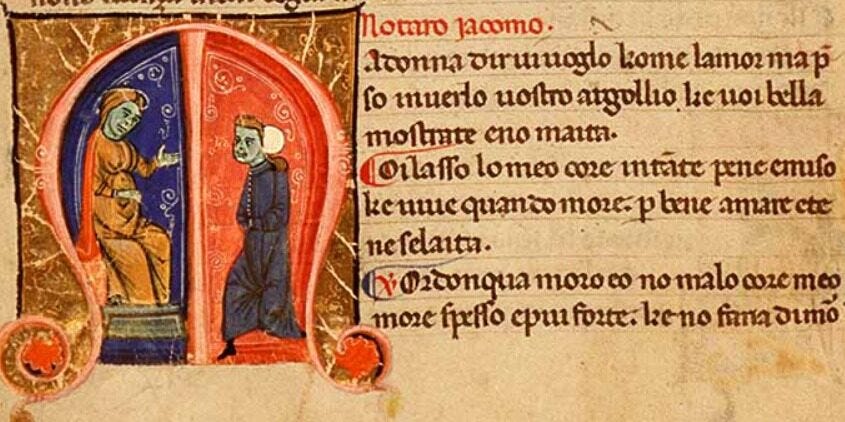 Notaro iacomo.
Madonna dir uiuoglo kome lamor ma p̄
so inuerlo uostro argollio ke uoi bella
mostrate eno maita.
Oilasso lo meo core intāte pene emiso
ke uiue quando more. p̱ bene amare ete
ne selaita.
Or donqua moro eo no malo core meo
more spesso epiu forte. ke no faria dimō